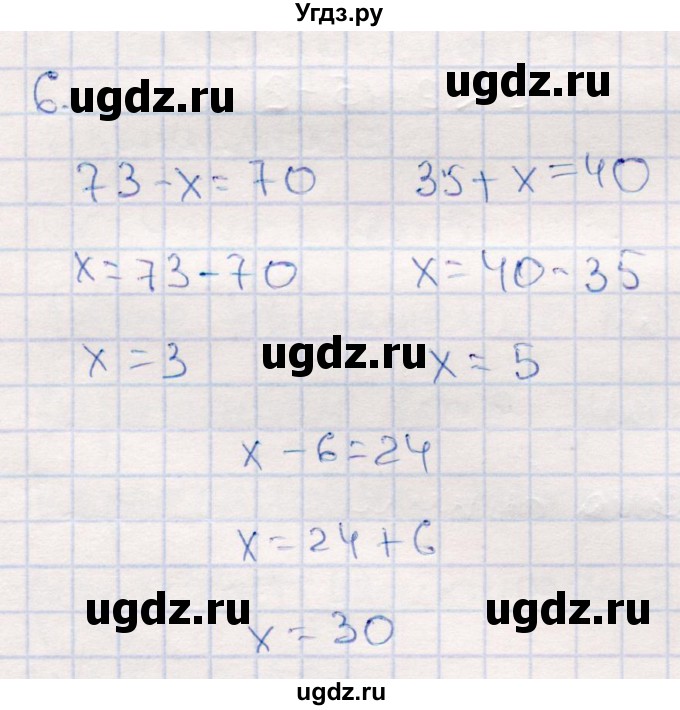 Угдз.ру
6. ugdz.ru ugdz.ru
73-x=70 35+x=40
x=73-70 x=40-35
x=3 ugdz.ru x=5
x-6=24
x=24+6
ugdz.ru x=30 ugdz.ru
ugdz.ru